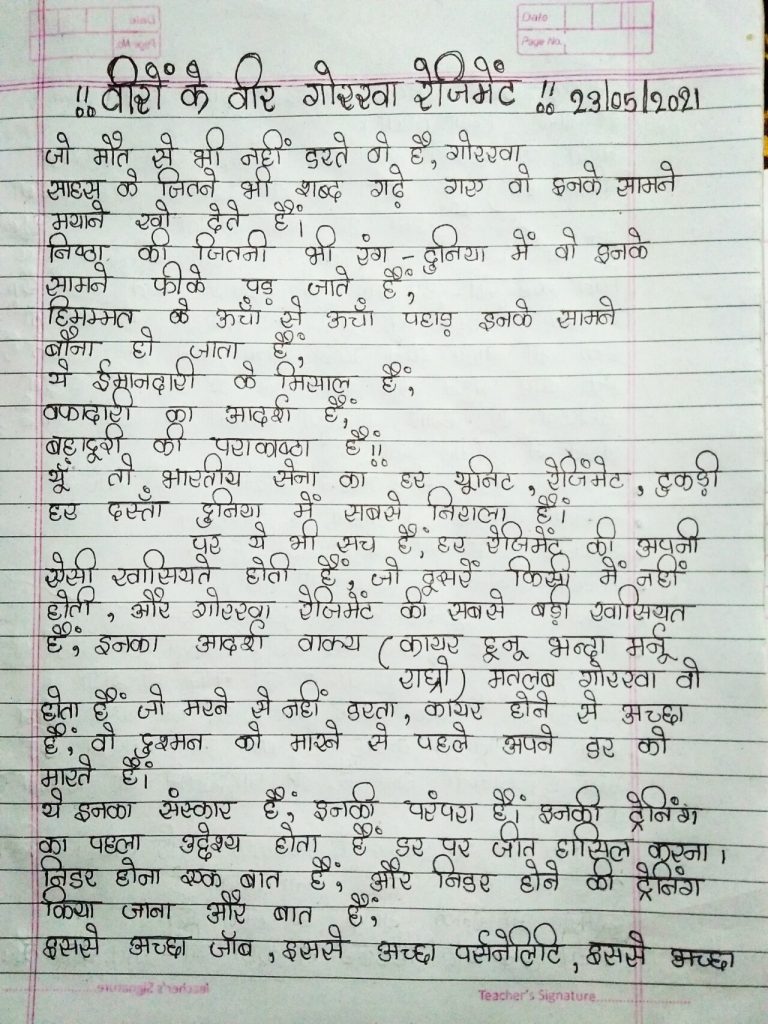 Date
Page No.
!! वीरों के वीर गोरखा रेजिमेंट !! 23/05/2021
जो मौत से भी नहीं डरते वो है, गोरखा
साहस के जितने भी शब्द गढ़े गए वो इनके सामने
मयाने खो देते हैं।
निष्ठा की जितनी भी रंग - दुनिया में वो इनके
सामने फीके पड़ जाते हैं,
हिमम्मत के ऊचाँ से ऊचाँ पहाड़ इनके सामने
बौना हो जाता हैं,
ये ईमानदारी के मिसाल हैं,
वफादारी का आदर्श हैं,
बहादूरी की पराकाष्ठा हैं!!
यूँ तो भारतीय सेना का हर यूनिट, रेजिमेंट, टुकड़ी
हर दस्ताँ दुनिया में सबसे निराला हैं।
पर ये भी सच हैं, हर रेजिमेंट की अपनी
ऐसी खासियते होती हैं, जो दूसरें किसी में नहीं
होती, और गोरखा रेजिमेंट की सबसे बड़ी खासियत
हैं, इनका आदर्श वाक्य (कायर हूनू भन्दा मर्नू
राम्रो) मतलब गोरखा वो
होता हैं जो मरने से नहीं डरता, कायर होने से अच्छा
हैं, वो दुश्मन को मारने से पहले अपने डर को
मारते हैं।
ये इनका संस्कार हैं, इनकी परंपरा हैं। इनकी ट्रेनिंग
का पहला उद्देश्य होता हैं डर पर जीत हासिल करना।
निडर होना एक बात हैं, और निडर होने की ट्रेनिंग
किया जाना और बात हैं,
इससे अच्छा जॉब, इससे अच्छा पर्सनेलिटि, इससे अच्छा
Teacher's Signature